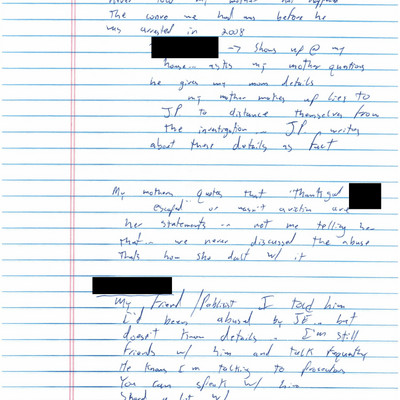 The                we had was before he
was arrested in 2008
→ Shows up @ my
house.. asks my mother questions
he gives my mom details
my mother makes up lies to
JP to distance themselves from
the investigation.. JP writes
about those details as fact
My mothers quotes that "Thank god
escaped" or wasn't a victim are
her statements.. not me telling her
that.. we never discussed the abuse
Thats how she dealt w/ it
My friend / Publicist I told him
I'd been abused by JE.. but
doesn't know details.. I'm still
friends w/ him and talk frequently
He knows I'm talking to prosecutors
You can speak w/ him
Shared a lot w/